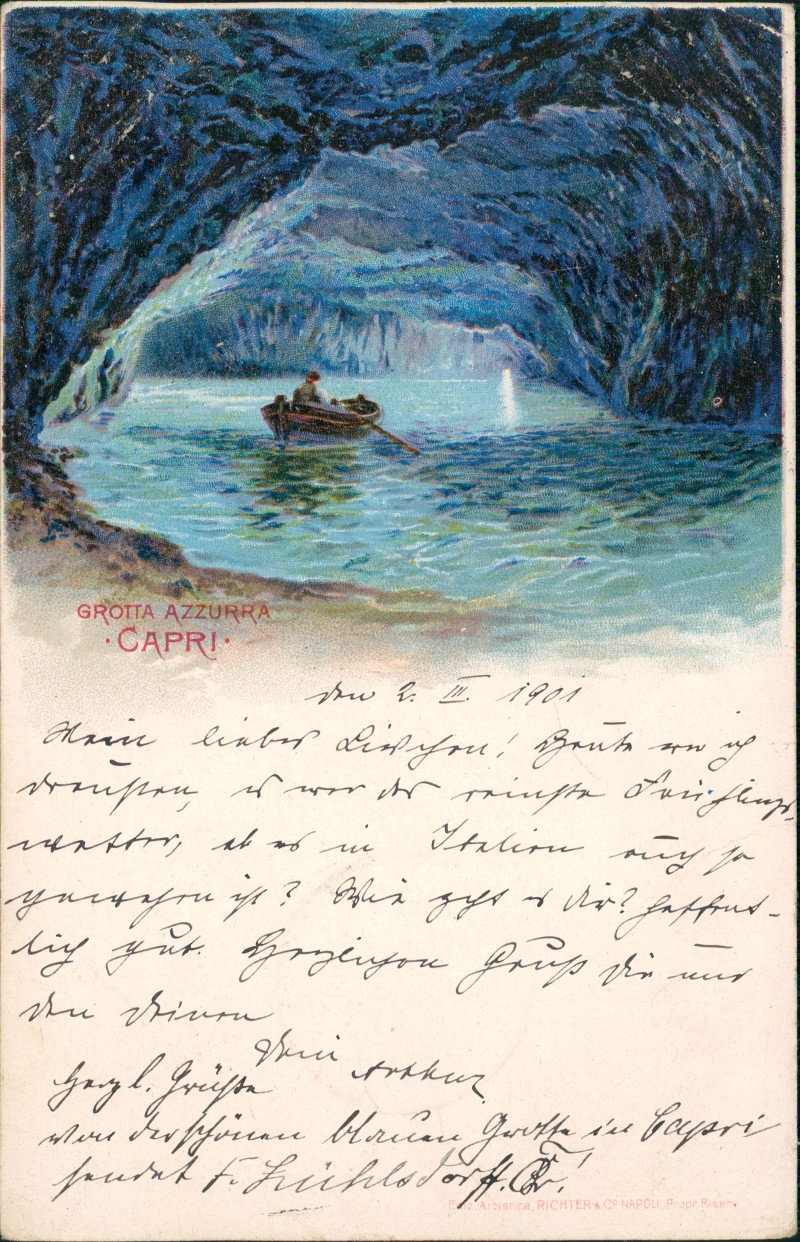 GROTTA AZZURRA
· CAPRI ·
den 2. III. 1901
Mein liebes Lieschen! Heute war ich
draußen, es war das reinste Frühlings-
wetter, ob es in Italien auch so
gewesen ist? Wie geht es dir? Hoffent-
lich gut. Herzlichen Gruß dir und
den deinen
Dein Arthur
Herzl. Grüße
von der schönen blauen Grotte in Capri
sendet F.
Ediz. Artistica, RICHTER & Cº NAPOLI, Propr. Riserv.